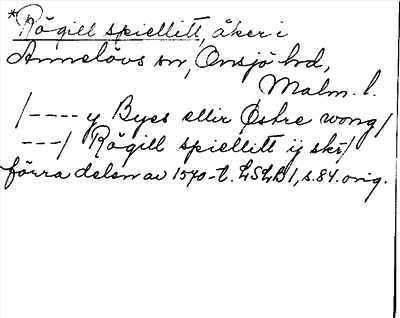 *Rögill spiellitt, åker i
Annelövs sn, Onsjö hd,
Malm. l.
/---- y Byes ellir Østre wong/
---/ Rögill spiellitt ij skr/
förra delen av 1570-t. LSLB 1, s. 84. orig.